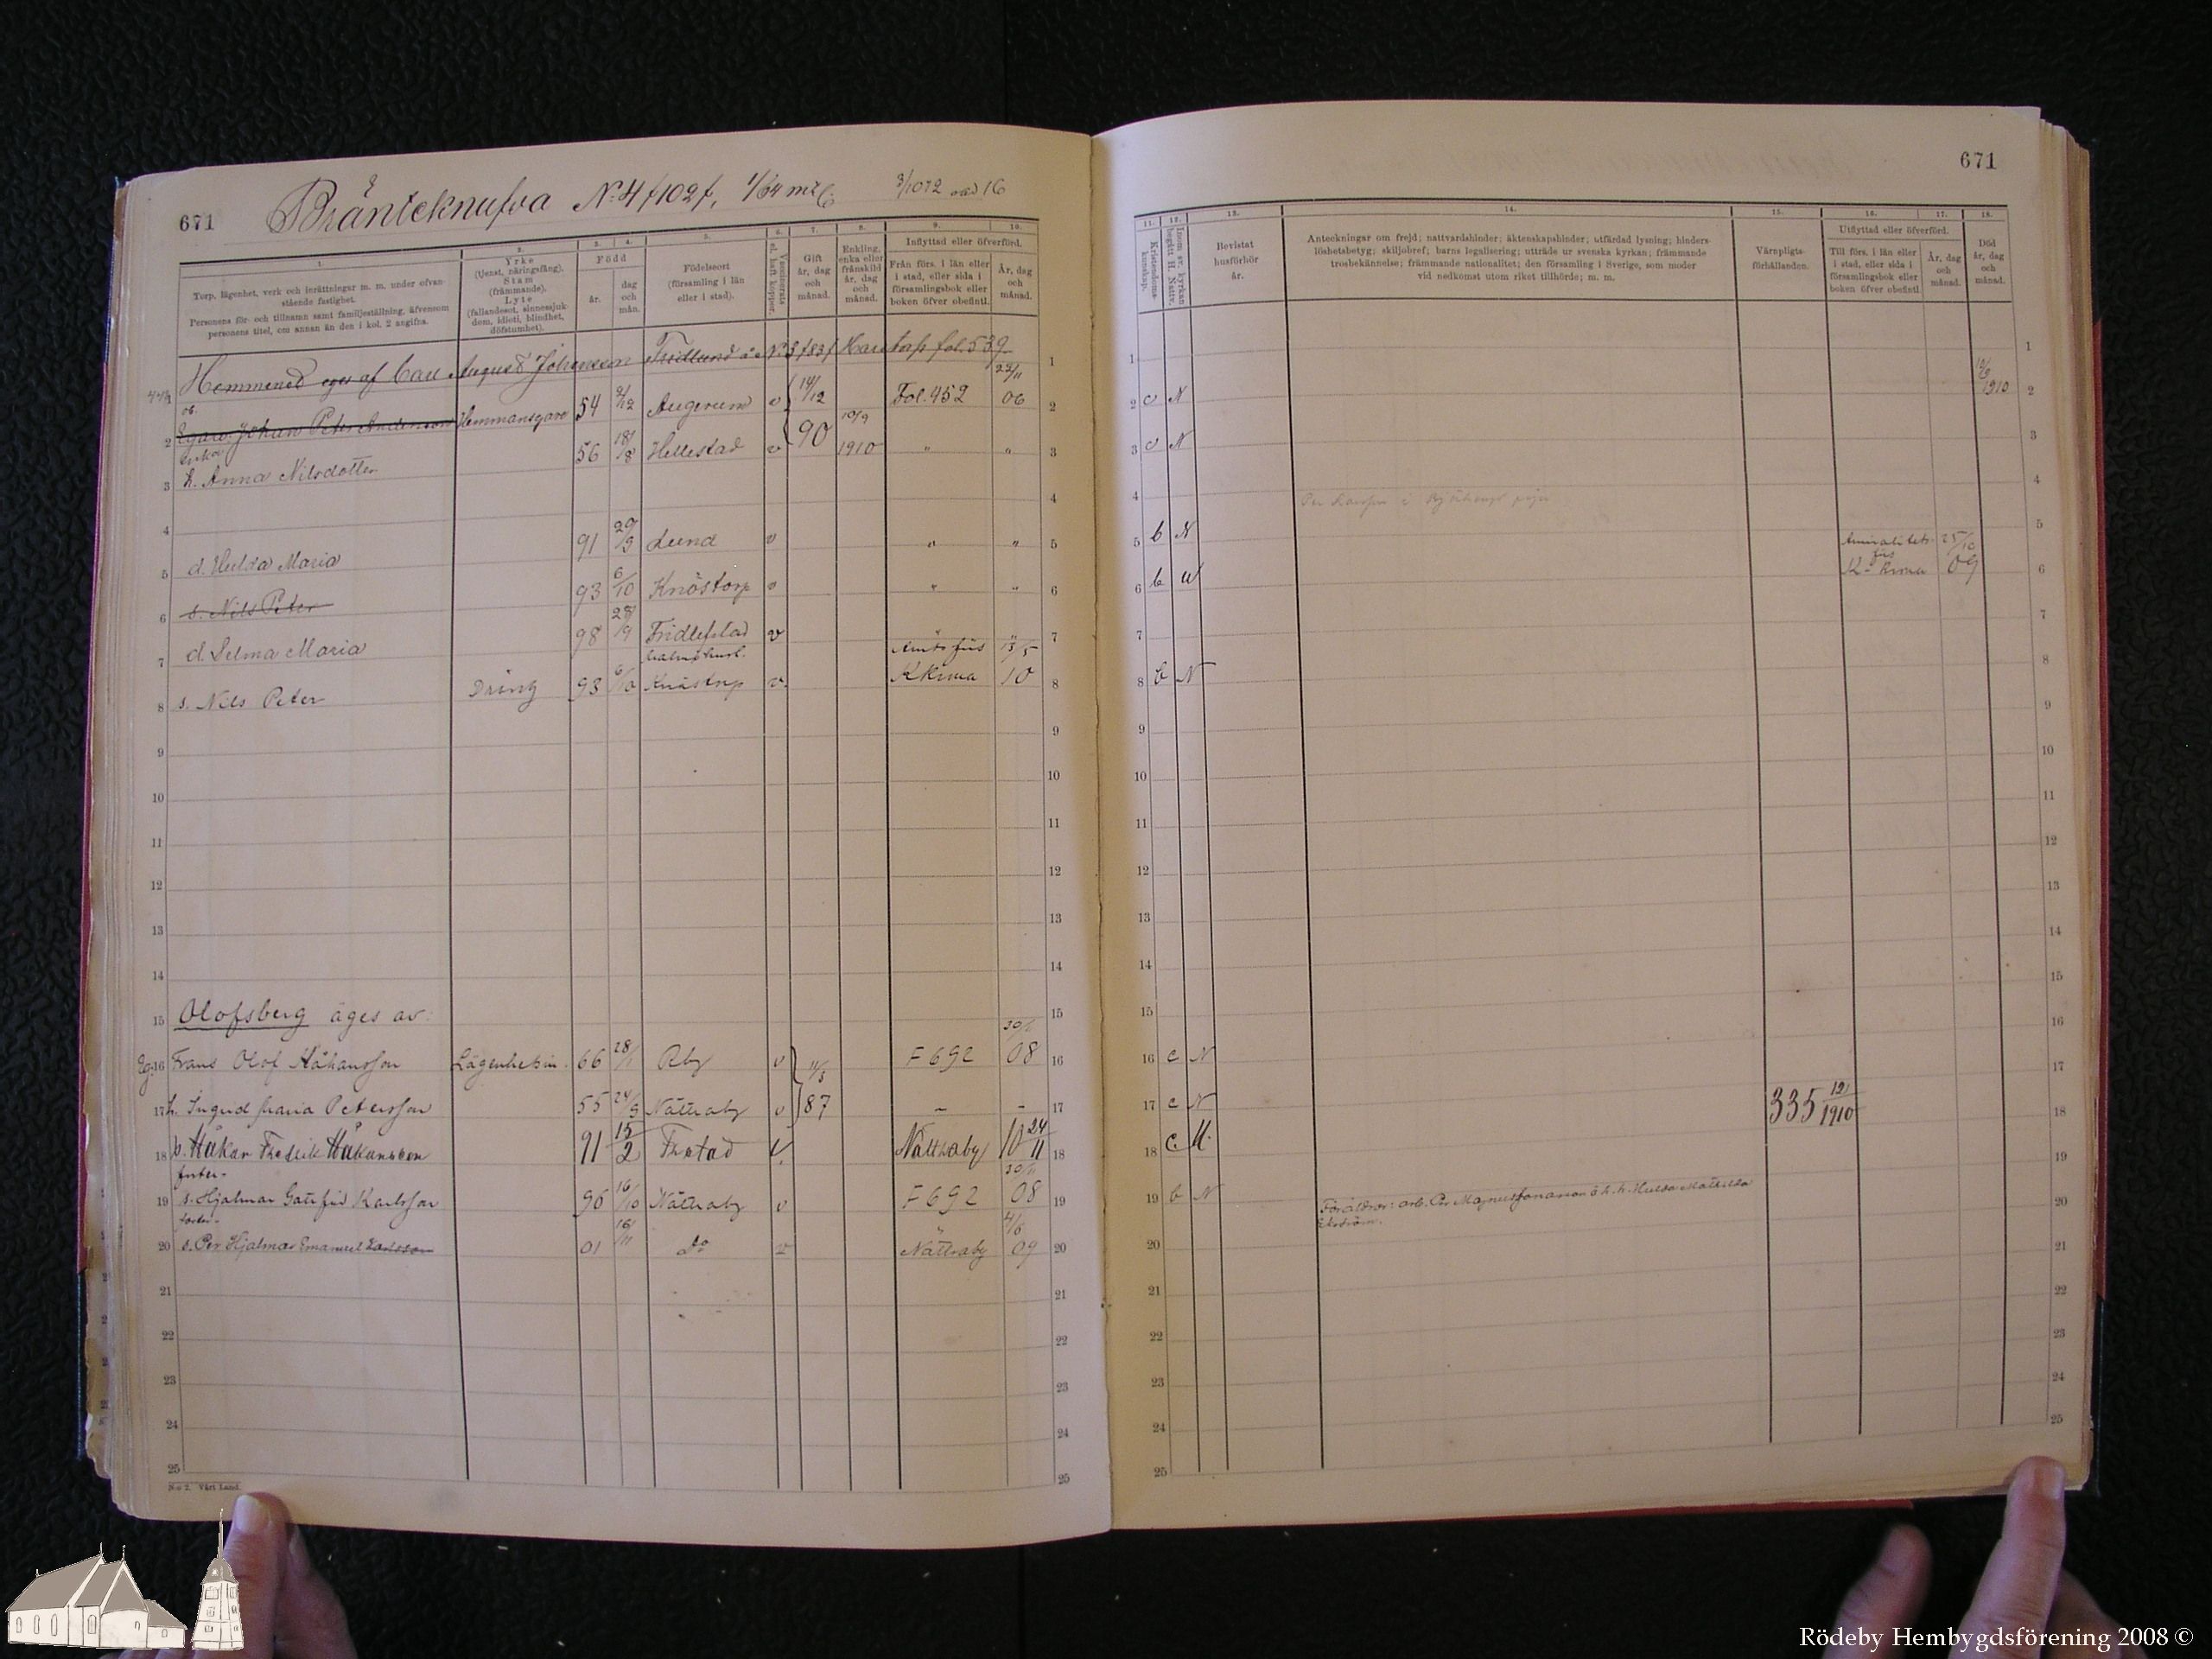 671
Bränteknufva N:4 f102f, 1/64 mtl
3/1072
1.
Torp, lägenhet, verk och inrättningar m. m. under ofvanstående fastighet.
Personens för- och tillnamn samt familjeställning, äfvensom personens titel, om annan än den i kol. 2 angifna.
2.
Yrke
(tjenst, näringsfång).
Stam
(främmande).
Lyte
(fallandesot, sinnessjukdom, idioti, blindhet, döfstumhet).
3. 4.
Född
år.
dag och mån.
5.
Födelseort
(församling i län eller i stad).
6.
Vaccinerats el. haft koppor.
7.
Gift
år, dag och månad.
8.
Enkling, enka eller frånskild
år, dag och månad.
9. 10.
Inflyttad eller öfverförd.
Från förs. i län eller i stad, eller sida i församlingsbok eller boken öfver obefintl.
År, dag och månad.
1 Hemmanet eges af Carl August Johansson Fridlund å N:3 f83f Harstorp fol. 539
2 Egaren Johan Peter Andersson Hemmansegare 54 2/12 Augerum v 14/12 90 Fol. 452 22/11 06
3 enka h. Anna Nilsdotter 56 18/8 Hellestad v 10/9 1910 " "
4
5 d. Hulda Maria 91 29/3 Lund v " "
6 s. Nils Peter 93 6/10 Knöstorp v " "
7 d. Selma Maria 98 28/9 Fridlefstad v " "
8 s. Nils Peter Dräng 93 6/10 Knästorp v. Amts förs Kkrona 13/5 10
9
10
11
12
13
14
15 Olofsberg äges av:
Eg. 16 Frans Olof Håkansson Lägenhetsin. 66 28/1 Rby v 11/3 87 F 692 30/1 08
17 h. Ingrid Maria Petersson 55 24/9 Nättraby v – –
18 s. Håkan Fredrik Håkansson 91 15/2 Fstad v. Nättraby 10 24/11
19 foster- s. Hjalmar Gottfrid Karlsson 96 16/10 Nättraby v F 692 30/11 08
20 foster- s. Per Hjalmar Emanuel Karlsson 01 16/11 Do v Nättraby 4/6 09
21
22
23
24
25
N:o 2. Vårt Land.
671
11.
Kristendomskunskap.
12.
Inom sv. kyrkan begått H. Nattv.
13.
Bevistat husförhör år.
14.
Anteckningar om frejd; nattvardshinder; äktenskapshinder; utfärdad lysning; hinderslöshetsbetyg; skiljobref; barns legalisering; utträde ur svenska kyrkan; främmande trosbekännelse; främmande nationalitet; den församling i Sverige, som moder vid nedkomst utom riket tillhörde; m. m.
15.
Värnpligtsförhållanden.
16. 17.
Utflyttad eller öfverförd.
Till förs. i län eller i stad, eller sida i församlingsbok eller boken öfver obefintl.
År, dag och månad.
18.
Död
år, dag och månad.
1
2 c N 1910
3 c N
4
5 b N
6 b u Amiralitets förs K-krona 25/10 09
7
8 b N
9
10
11
12
13
14
15
16 c N
17 c N
18 c. U. 335 12/1910
19 b N Föräldrar: arb. Per Magnus Jonasson o. h. h. Hulda Mathilda Ekström.
20
21
22
23
24
25
Rödeby Hembygdsförening 2008 ©